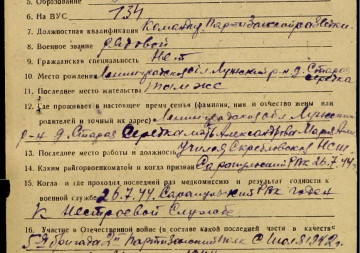 5. Образование
6. На ВУС 134
7. Должностная квалификация Командир Партизанской разведки
8. Военное звание рядовой
9. Гражданская специальность Нет
10. Место рождения Ленинградской обл Лужский р-н д. Старая Середка
11. Последнее место жительства там же
12. Где проживает в настоящее время семья (фамилия, имя и отчество жены или
родителей и точный их адрес) Ленинградской обл Лужский
р-н д. Старая Середка мать Александрова Мария
13. Последнее место работы и должность Училси Скребловская НСШ
14. Каким райгорвоенкоматом и когда призван Сарапульский РВК 26.7.44 г.
15. Когда и где проходил последний раз медкомиссию и результат годности к
военной службе 26.7.44. Сарапульский РВК годен
к нестроевой службе
16. Участие в Отечественной войне (в составе какой последней части в качестве
5я бригада Партизанский полк с Июля 1942 г.